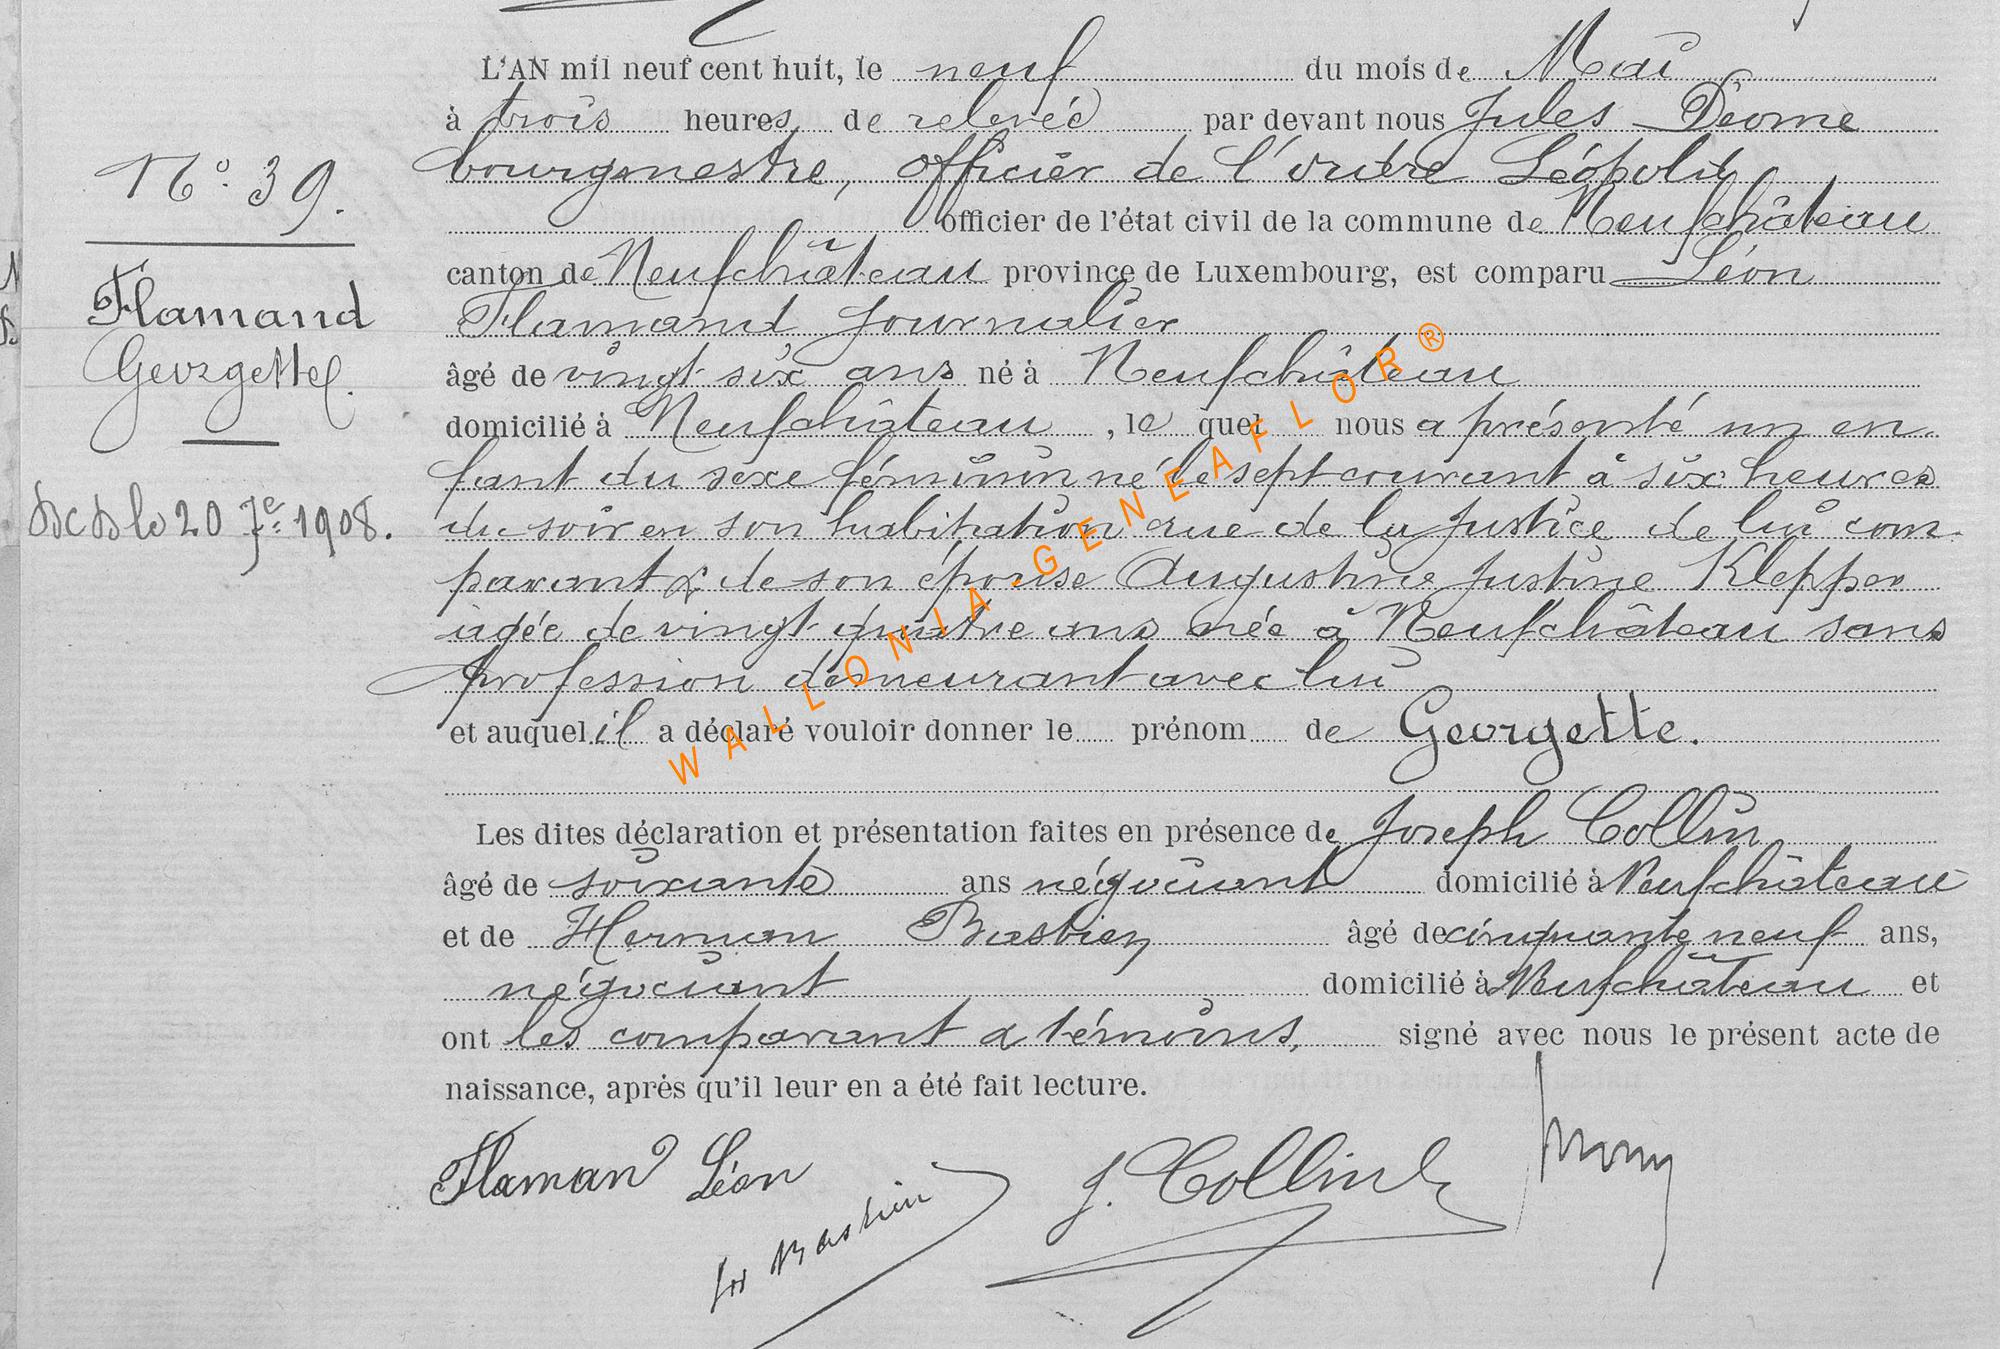 L'AN mil neuf cent huit, le neuf du mois de Mai
à trois heures de relevée par devant nous Jules Deome
bourgmestre, officier de l'ordre Léopold
officier de l'état civil de la commune de Neufchâteau
canton de Neufchâteau province de Luxembourg, est comparu Léon
Flamand journalier
âgé de vingt six ans né à Neufchâteau
domicilié à Neufchâteau, le quel nous a présenté un en-
fant du sexe féminin né le sept courant à six heures
du soir en son habitation rue de la Justice de lui com-
parant & de son épouse Augustine Justine Klepper
agée de vingt-quatre ans née à Neufchâteau sans
profession demeurant avec lui
et auquel il a déclaré vouloir donner le prénom de Georgette.
Les dites déclaration et présentation faites en présence de Joseph Collin
âgé de soixante ans négociant domicilié à Neufchâteau
et de Herman Bastien âgé de cinquante neuf ans,
négociant domicilié à Neufchâteau et
ont les comparant & témoins, signé avec nous le présent acte de
naissance, après qu'il leur en a été fait lecture.
Flamand Léon
Bastien
J. Collin
N° 39.
Flamand
Georgette
le 20 7e 1908.
WALLONIA-GENEAFLOR®